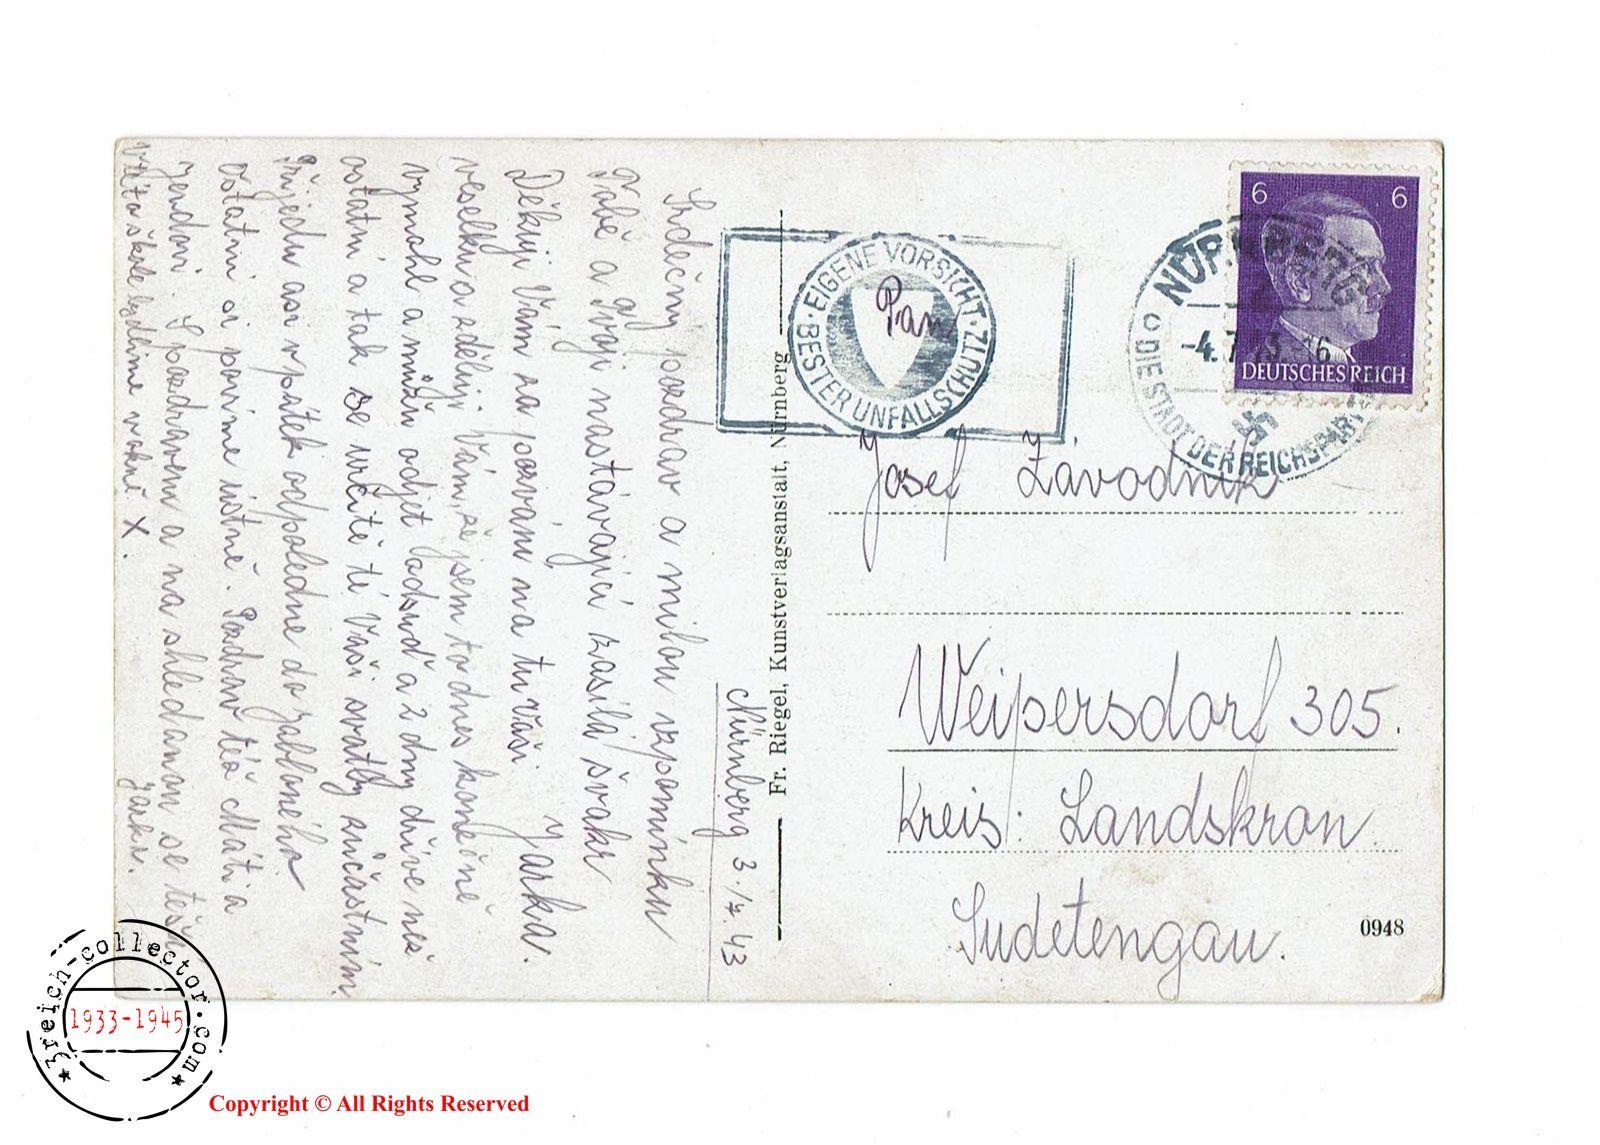 Nürnberg 3./7. 43
Srdečný pozdrav a milou vzpomínku
Tobě a Tvoji nastávající zasílá švakr
Jarka.
Děkuji Vám za pozvání na tu Vaši
veselku a sděluji Vám, že jsem to dnes konečně
vymohl a můžu odjet odsud a 2 dny dříve než
ostatní a tak se určitě té Vaší svatby zúčastním.
Přijedu asi v pátek odpoledne do Jablonného.
Ostatní si povíme ústně. Pozdrav též Máti a
Jendovi. S pozdravem a na shledanou se těší
Jarka.
EIGENE VORSICHT · BESTER UNFALLSCHUTZ
NÜRNBERG
-4.7.43.-16
DIE STADT DER REICHSPART
6 6
DEUTSCHES REICH
Fr. Riegel, Kunstverlagsanstalt, Nürnberg
Pan
Josef Závodník
Weipersdorf 305.
Kreis: Landskron.
Sudetengau.
0948
3reich-collector.com
1933-1945
Copyright © All Rights Reserved